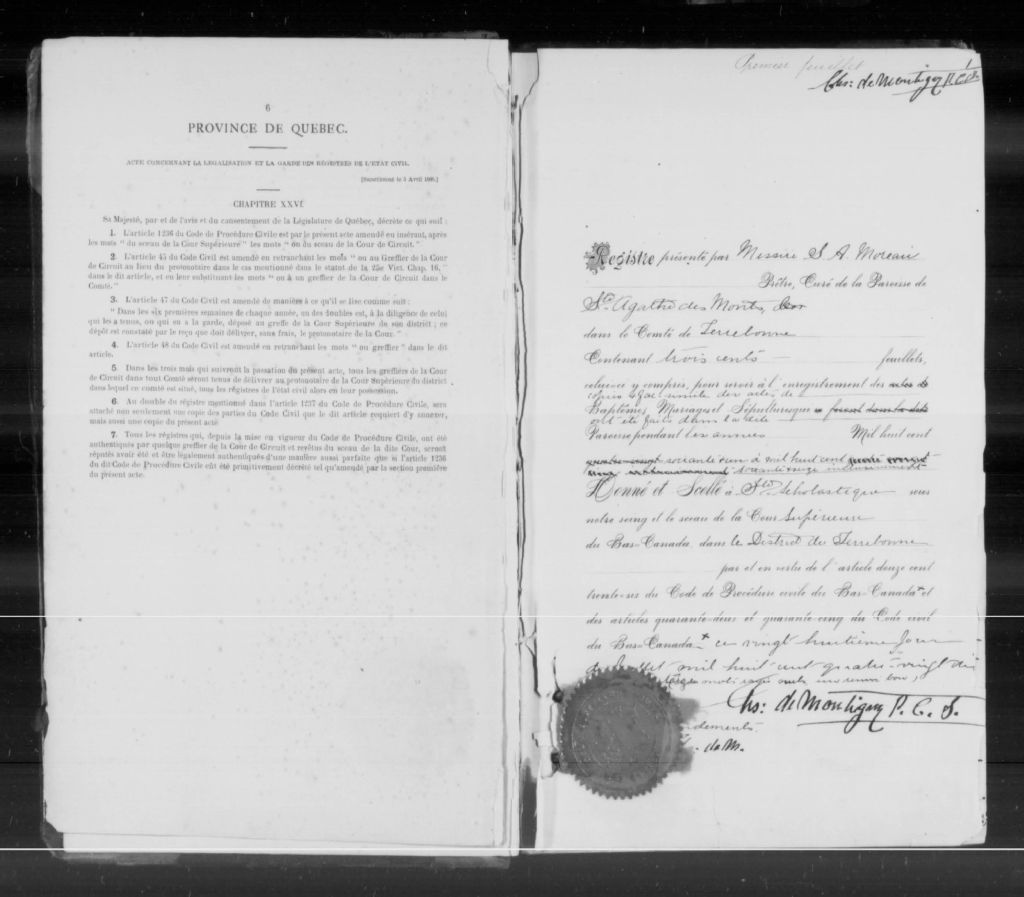 6
PROVINCE DE QUEBEC.
ACTE CONCERNANT LA LEGALISATION ET LA GARDE DES RÉGISTRES DE L'ETAT CIVIL.
[Sanctionné le 5 Avril 1869.]
CHAPITRE XXVI
SA Majesté, par et de l'avis et du consentement de la Législature de Québec, décrète ce qui suit :
1. L'article 1236 du Code de Procédure Civile est par le présent acte amendé en insérant, après
les mots " du sceau de la Cour Supérieure " les mots " ou du sceau de la Cour de Circuit. "
2. L'article 45 du Code Civil est amendé en retranchant les mots " ou au Greffier de la Cour
de Circuit au lieu du protonotaire dans le cas mentionné dans le statut de la 25e Vict. Chap. 16, "
dans le dit article, et en leur substituant les mots " ou à un greffier de la Cour de Circuit dans le
Comté. "
3. L'article 47 du Code Civil est amendé de manière à ce qu'il se lise comme suit :
" Dans les six premières semaines de chaque année, un des doubles est, à la diligence de celui
qui les a tenus, ou qui en a la garde, déposé au greffe de la Cour Supérieure de son district ; ce
dépôt est constaté par le reçu que doit délivrer, sans frais, le protonotaire de la Cour. "
4. L'article 48 du Code Civil est amendé en retranchant les mots " ou greffier " dans le dit
article.
5. Dans les trois mois qui suivront la passation du présent acte, tous les greffiers de la Cour
de Circuit dans tout Comté seront tenus de délivrer au protonotaire de la Cour Supérieure du district
dans lequel ce comté est situé, tous les régistres de l'état civil alors en leur possession.
6. Au double du régistre mentionné dans l'article 1237 du Code de Procédure Civile, sera
attaché non seulement une copie des parties du Code Civil que le dit article requiert d'y annexer,
mais aussi une copie du présent acte
7. Tous les régistres qui, depuis la mise en vigueur du Code de Procédure Civile, ont été
authentiqués par quelque greffier de la Cour de Circuit et revêtus du sceau de la dite Cour, seront
réputés avoir été et être légalement authentiqués d'une manière aussi parfaite que si l'article 1236
du dit Code de Procédure Civile eût été primitivement décrété tel qu'amendé par la section première
du présent acte.
Premier feuillet 1
Chs: de Montigny P.C.S.
Registre présenté par Messire S A. Moreau
Prêtre, Curé de la Paroisse de
Ste Agathe des Monts,
dans le Comté de Terrebonne
Contenant trois cents feuillets,
celui-ce y compris, pour servir à l'enregistrement des actes de
des actes de
Baptêmes Mariages et Sépultures qui se feront dans la dite
ont été faits dans la dite
Paroisse pendant les années Mil huit cent
quatre-vingt soixante à mil huit cent
Donné et Scellé à Ste Scholastique sous
notre seing et le sceau de la Cour Supérieure
du Bas-Canada, dans le District de Terrebonne
par et en vertu de l'article douze cent
trente-six du Code de Procédure civile du Bas-Canada + et
des articles quarante-deux et quarante-cinq du Code civil
du Bas-Canada + ce vingt huitième jour
de Juillet mil huit cent quatre-vingt dix
mots rayés
Chs: de Montigny P. C. S.
de M.